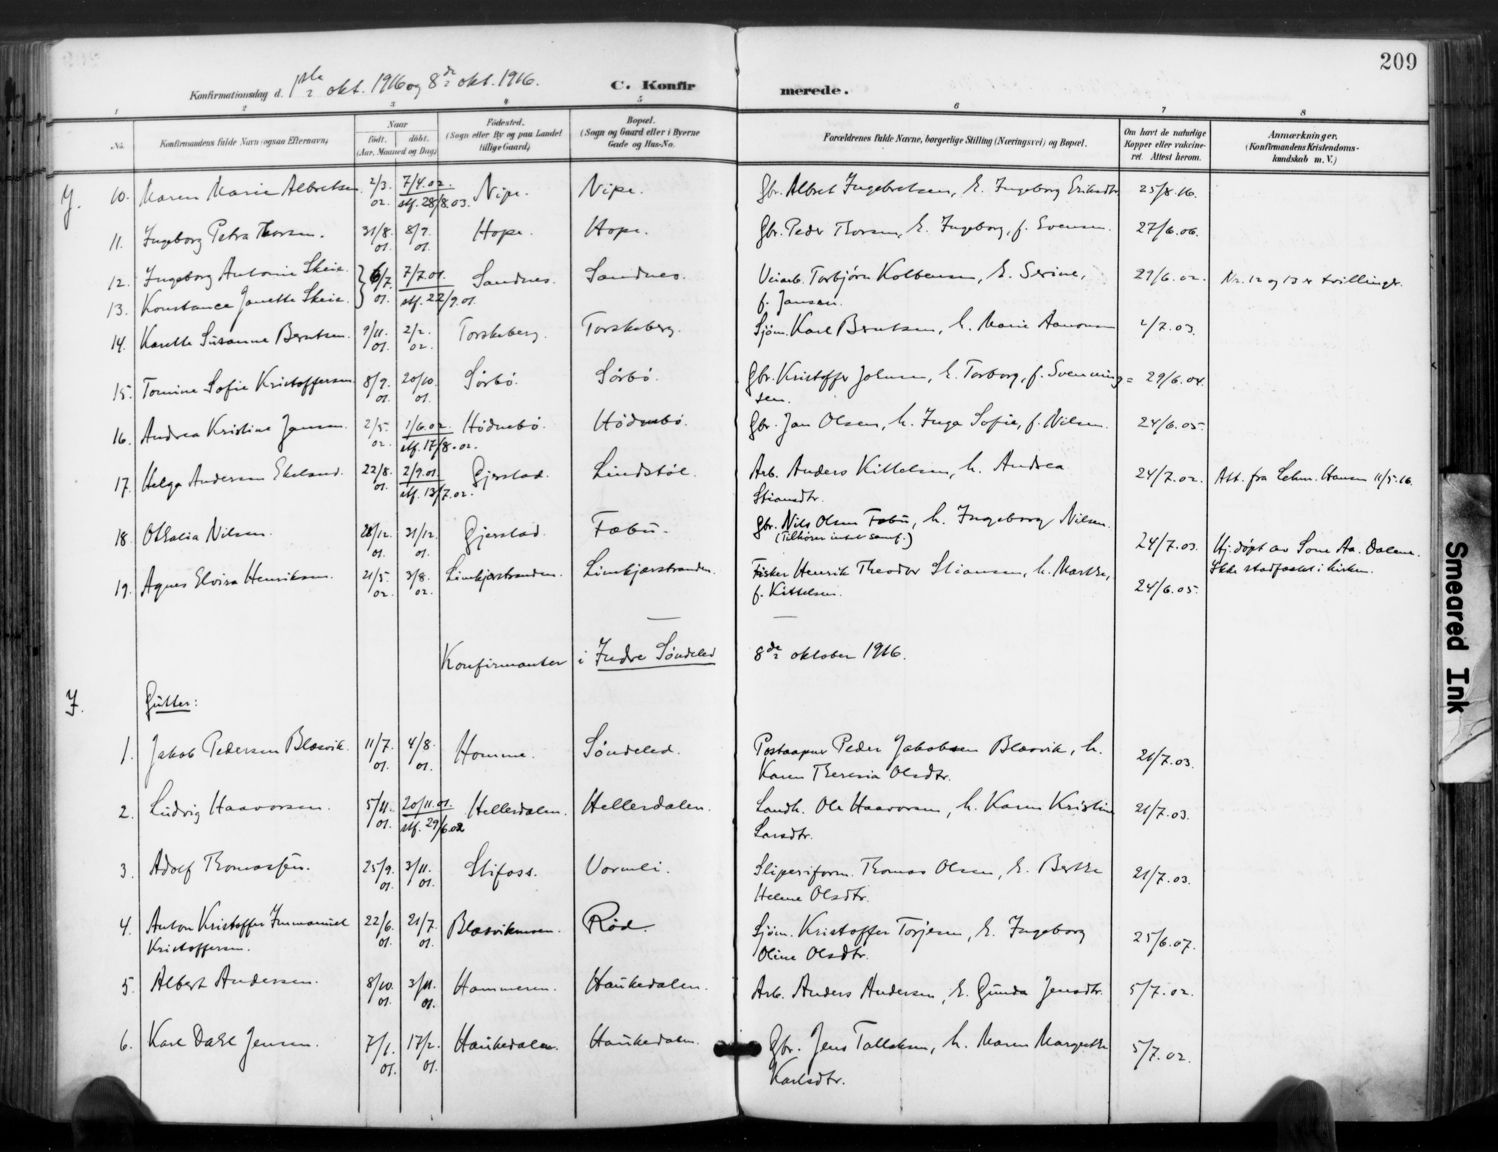 209
Konfirmationsdag d. 1ste okt. 1916 og 8de okt. 1916. C. Konfirmerede.
1 2 3 4 5 6 7 8
No. Konfirmandens fulde Navn (ogsaa Efternavn) Naar født. døbt. (Aar, Maaned og Dag) Fødested. (Sogn eller By og paa Landet tillige Gaard) Bopæl. (Sogn og Gaard eller i Byerne Gade og Hus-No. Forældrenes fulde Navne, borgerlige Stilling (Næringsvei) og Bopæl. Om havt de naturlige Kopper eller vakcineret. Attest herom. Anmærkninger. (Konfirmandens Kristendomskundskab m. V.)
Y. 10. Maren Marie Albretsen 2/3. 02. 7/4.02. stf. 28/8.03. Nipe. Nipe. Gbr. Albret Ingebretsen, h. Ingeborg Eriksdtr. 25/8.16.
11. Ingeborg Petra Thorsen. 31/8. 01. 8/9. 01. Hope. Hope. Gbr. Peder Thorsen, h. Ingeborg, f. Evensen. 27/6.06.
12. Ingeborg Antonie Skeie. 6/7. 01. 7/7.01. stf. 22/9.01. Sandnes. Sandnes. Veiarb. Torbjørn Kolbensen, h. Serine, f. Jansen. 29/6.02. Nr. 12 og 13 er tvillinger.
13. Konstance Janette Skeie.
14. Karelle Susanne Berntsen. 9/11. 01. 2/2. 02. Torskeberg. Torskeberg. Sjøm. Karl Berntsen, h. Marie Aanonsen 2/7.03.
15. Tomine Sofie Kristoffersen 8/9. 01. 20/10. 01. Sørbø. Sørbø. Gbr. Kristoffer Johnsen, h. Torborg, f. Svenningsen. 29/6.04.
16. Andrea Kristine Jansen. 2/5. 02. 1/6.02. stf. 17/8.02. Hødnebø. Hødnebø. Gbr. Jan Olsen, h. Inga Sofie, f. Nilsen. 24/6.05.
17. Helga Andersen Ekeland. 22/8. 01. 2/9.01. stf. 13/7.02. Gjerstad. Lindstøl. Arb. Anders Kittelsen, h. Andrea Stiansdtr. 24/7.02. Att. fra Lehm. Hansen 11/5.16.
18. Othalia Nilsen. 28/12. 01. 31/12. 01. Gjerstad. Fæbu. Gbr. Nils Olsen Fæbu, h. Ingeborg Nilsen. (Tilhører intet samf.) 24/7.03. Hj.døpt av Sone Aa. Dalene. Ikke stadfæstet i kirken.
19. Agnes Elvira Henriksen. 21/5. 02. 3/8. 02. Limkjærstranden. Limkjærstranden. Fisker Henrik Theodor Stiansen, h. Marthe, f. Kittelsen. 24/6.05.
Konfirmanter i Indre Søndeled 8de oktober 1916.
I. Gutter:
1. Jakob Pedersen Blæsvik. 11/7. 01. 4/8. 01. Homme. Søndeled. Postaapner Peder Jakobsen Blæsvik, h. Karen Theresia Olsdtr. 21/7.03.
2. Ludvig Haavorsen. 5/11. 01. 20/11.01. stf. 29/6.02 Hellerdalen. Hellerdalen. Landh. Ole Haavorsen, h. Karen Kristine Larsdtr. 21/7.03.
3. Adolf Thomassen. 25/9. 01. 3/11. 01. Stifoss. Vormli. Sliperiform. Thomas Olsen, h. Berthe Helene Olsdtr. 21/7.03.
4. Anton Kristoffer Immanuel Kristoffersen. 22/6. 01. 21/7. 01. Blæsvikmoen. Rød Sjøm. Kristoffer Torjesen, h. Ingeborg Oline Olsdtr. 25/6.07.
5. Albert Andersen. 8/10. 01. 3/11. 01. Hammeren. Haukedalen. Arb. Anders Andersen, h. Gunda Jensdtr. 5/7.02.
6. Karl Dahl Jensen. 7/1. 01. 17/2. 01. Haukedalen. Haukedalen. Gbr. Jens Tallaksen, h. Maren Margrethe Karlsdtr. 5/7.02.
Smeared Ink